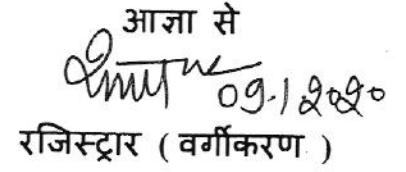 आज्ञा से
09.1.2020
रजिस्ट्रार ( वर्गीकरण )